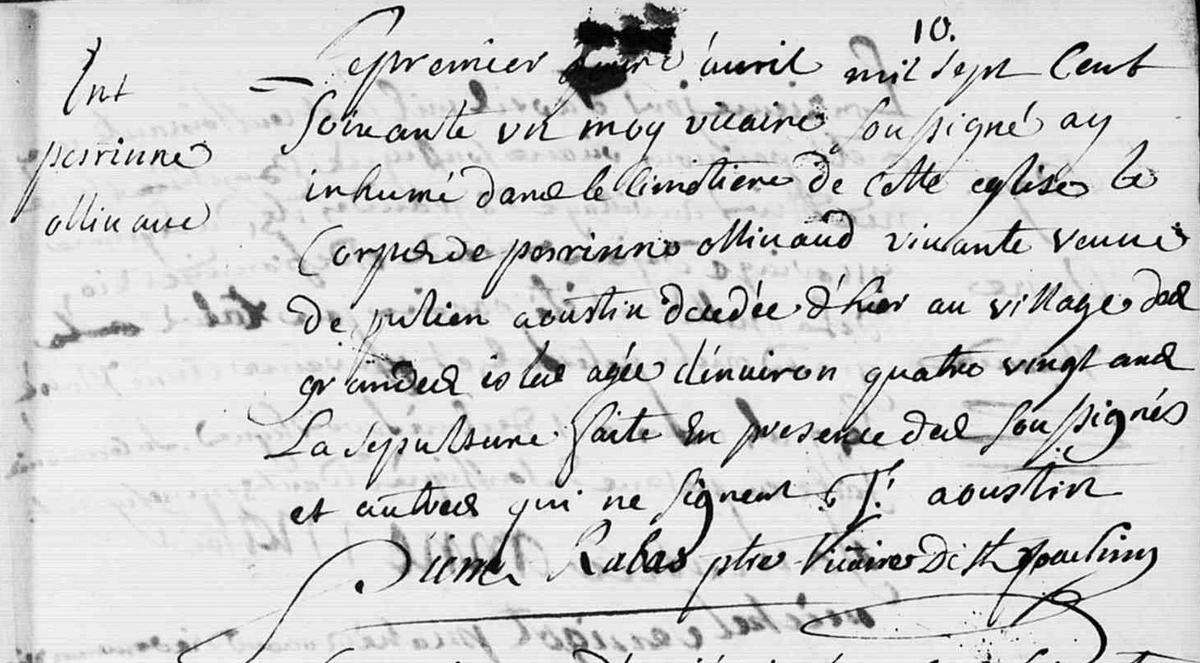 10.
Int
perrinne
ollivaue
Le premier jour d'auril mil sept Cent
soixante un moy vicaire soussigné ay
inhumé dans le Cimetiere de cette eglise le
Corps de perrinne ollivaud vivante veuue
de julien aoustin decedée d'hier au village des
grandes isles agée d'enuiron quatre vingt ans
La sepulture faite En presence des soussignés
et autres qui ne signent J. aoustin
Pierre Rabas ptre Vicaire De St Joachim